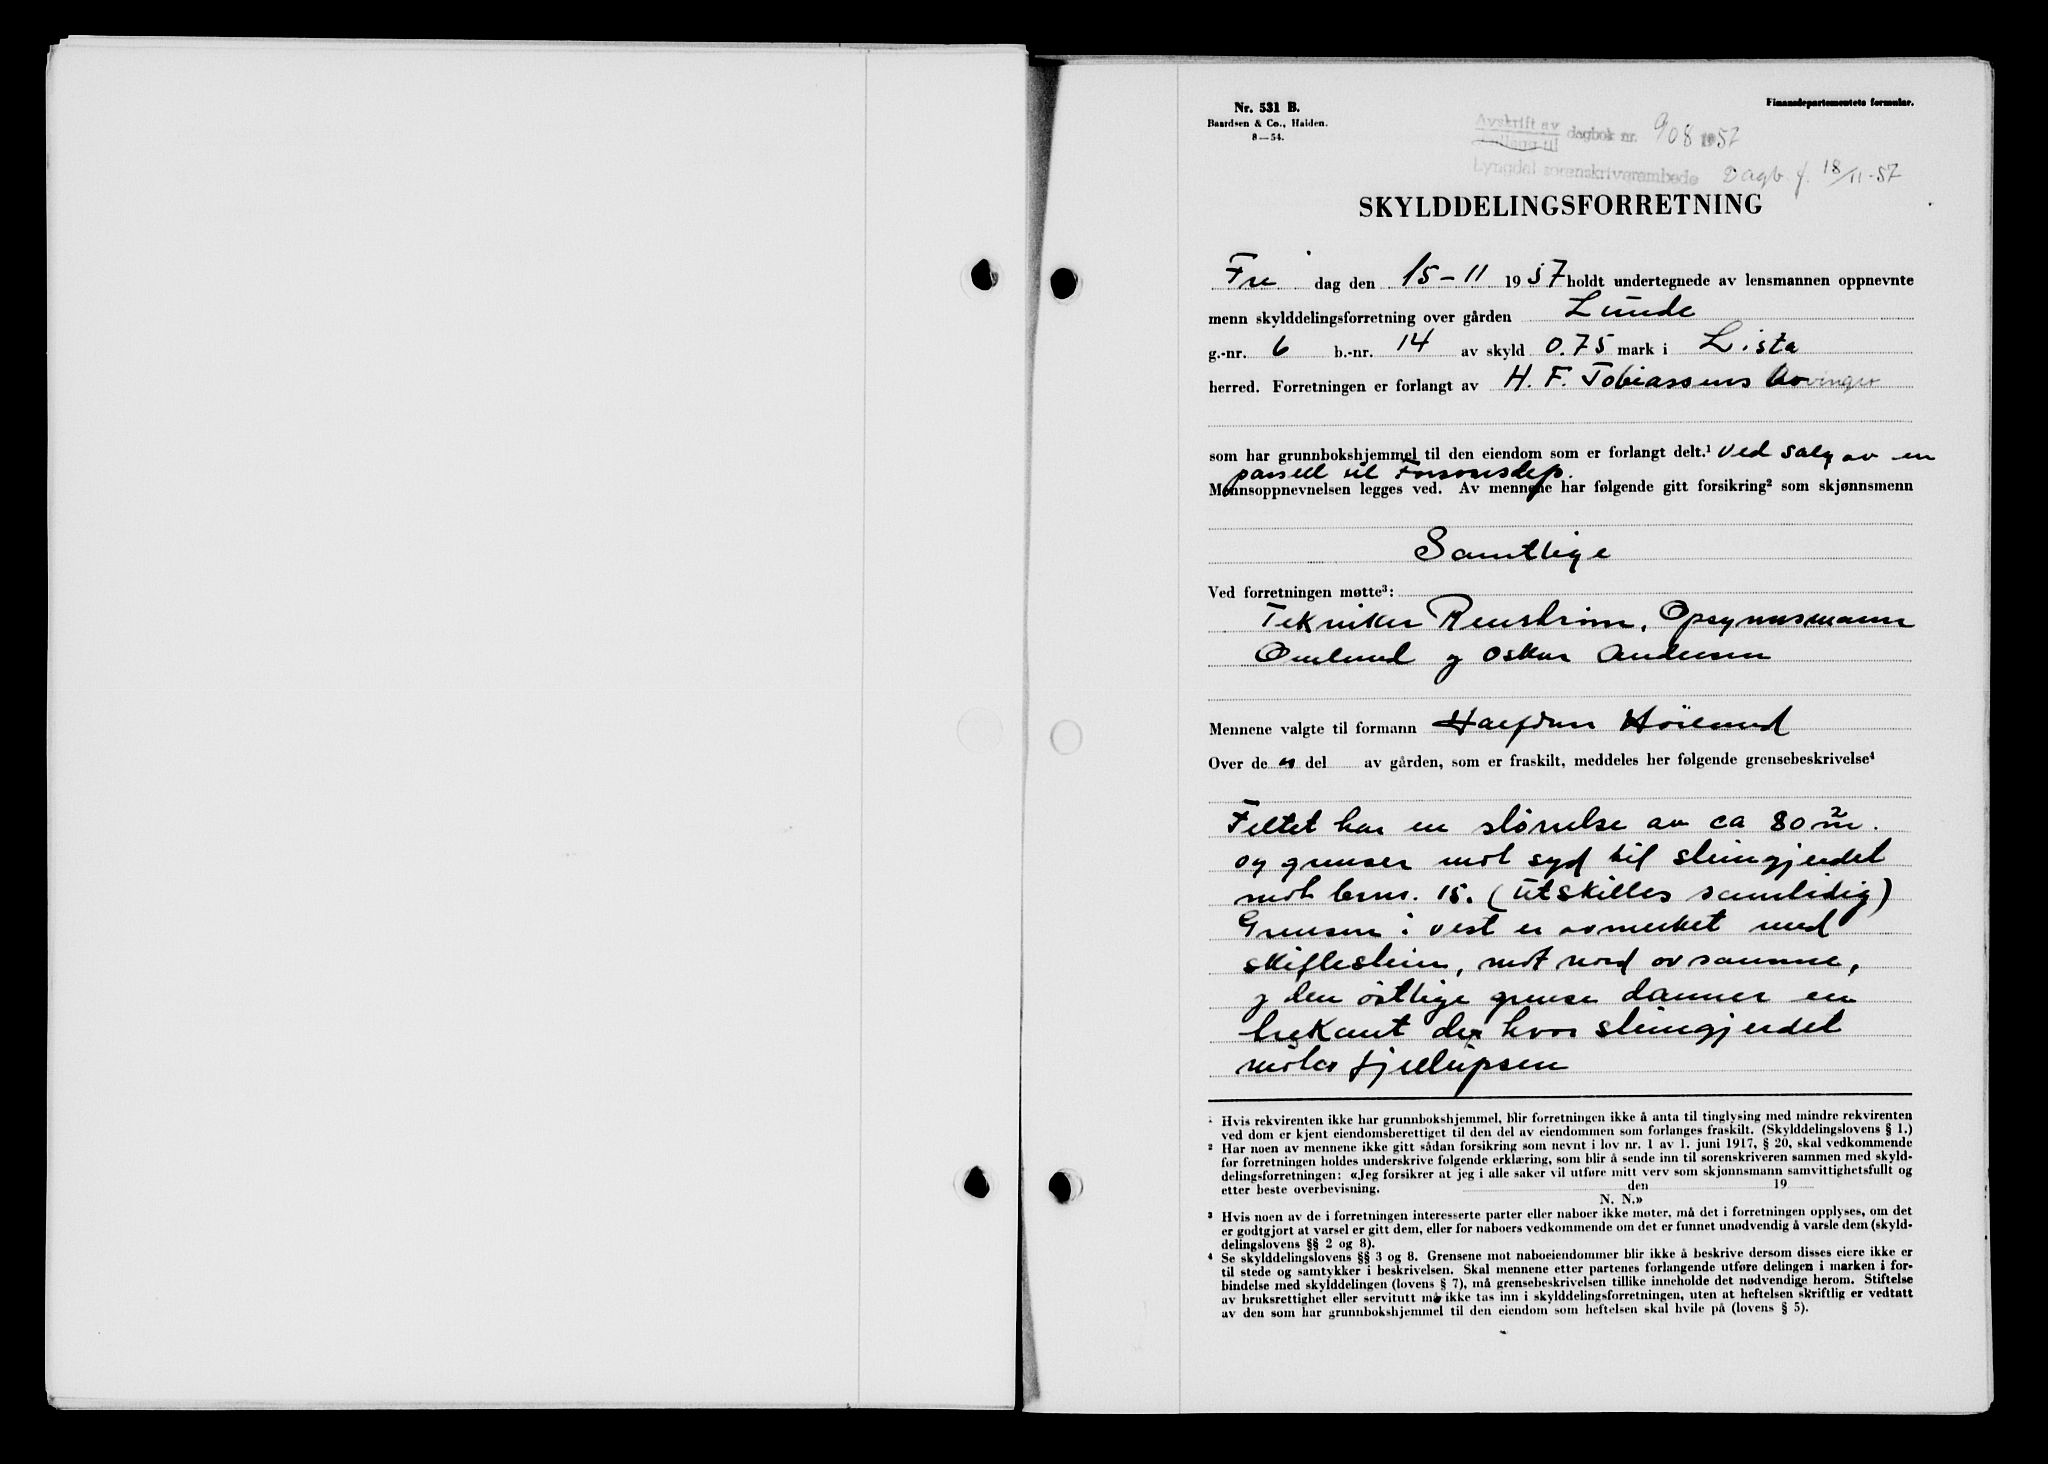 Nr. 531 B.
Baardsen & Co., Halden.
8—54.
Finansdepartementets formular.
Avskrift av
dagbok nr. 908 1957
Lyngdal sorenskriverembede Dagb. f. 18/11-57
SKYLDDELINGSFORRETNING
Fre dag den 15-11 1957 holdt undertegnede av lensmannen oppnevnte
menn skylddelingsforretning over gården Lunde
g.-nr. 6 b.-nr. 14 av skyld 0.75 mark i Lista
herred. Forretningen er forlangt av H. F. Tobiassens arvinger
som har grunnbokshjemmel til den eiendom som er forlangt delt.¹ ved salg av en
parsell til Forsvarsdep.
Mennsoppnevnelsen legges ved. Av mennene har følgende gitt forsikring² som skjønnsmenn
Samtlige
Ved forretningen møtte³:
Tekniker Renstrøm, Opsynsmann
Omlund og Oskar Andersen
Mennene valgte til formann Halfdan Höilund
Over den del av gården, som er fraskilt, meddeles her følgende grensebeskrivelse⁴
Feltet har en størrelse av ca 80 m².
og grenser mot syd til steingjerdet
mot brnr. 15. (utskilles samtidig)
Grensen i vest er avmerket med
skiftestein, mot nord av samme,
og den östlige grense danner en
trekant der hvor steingjerdet
möter fjellupsen
¹ Hvis rekvirenten ikke har grunnbokshjemmel, blir forretningen ikke å anta til tinglysing med mindre rekvirenten
ved dom er kjent eiendomsberettiget til den del av eiendommen som forlanges fraskilt. (Skylddelingslovens § 1.)
² Har noen av mennene ikke gitt sådan forsikring som nevnt i lov nr. 1 av 1. juni 1917, § 20, skal vedkommende
før forretningen holdes underskrive følgende erklæring, som blir å sende inn til sorenskriveren sammen med skyld-
delingsforretningen: «Jeg forsikrer at jeg i alle saker vil utføre mitt verv som skjønnsmann samvittighetsfullt og
etter beste overbevisning. den 19
N. N.»
³ Hvis noen av de i forretningen interesserte parter eller naboer ikke møter, må det i forretningen opplyses, om det
er godtgjort at varsel er gitt dem, eller for naboers vedkommende om det er funnet unødvendig å varsle dem (skyld-
delingslovens §§ 2 og 8).
⁴ Se skylddelingslovens §§ 3 og 8. Grensene mot naboeiendommer blir ikke å beskrive dersom disses eiere ikke er
til stede og samtykker i beskrivelsen. Skal mennene etter partenes forlangende utføre delingen i marken i for-
bindelse med skylddelingen (lovens § 7), må grensebeskrivelsen tillike inneholde det nødvendige herom. Stiftelse
av bruksrettighet eller servitutt må ikke tas inn i skylddelingsforretningen, uten at heftelsen skriftlig er vedtatt
av den som har grunnbokshjemmel til den eiendom som heftelsen skal hvile på (lovens § 5).